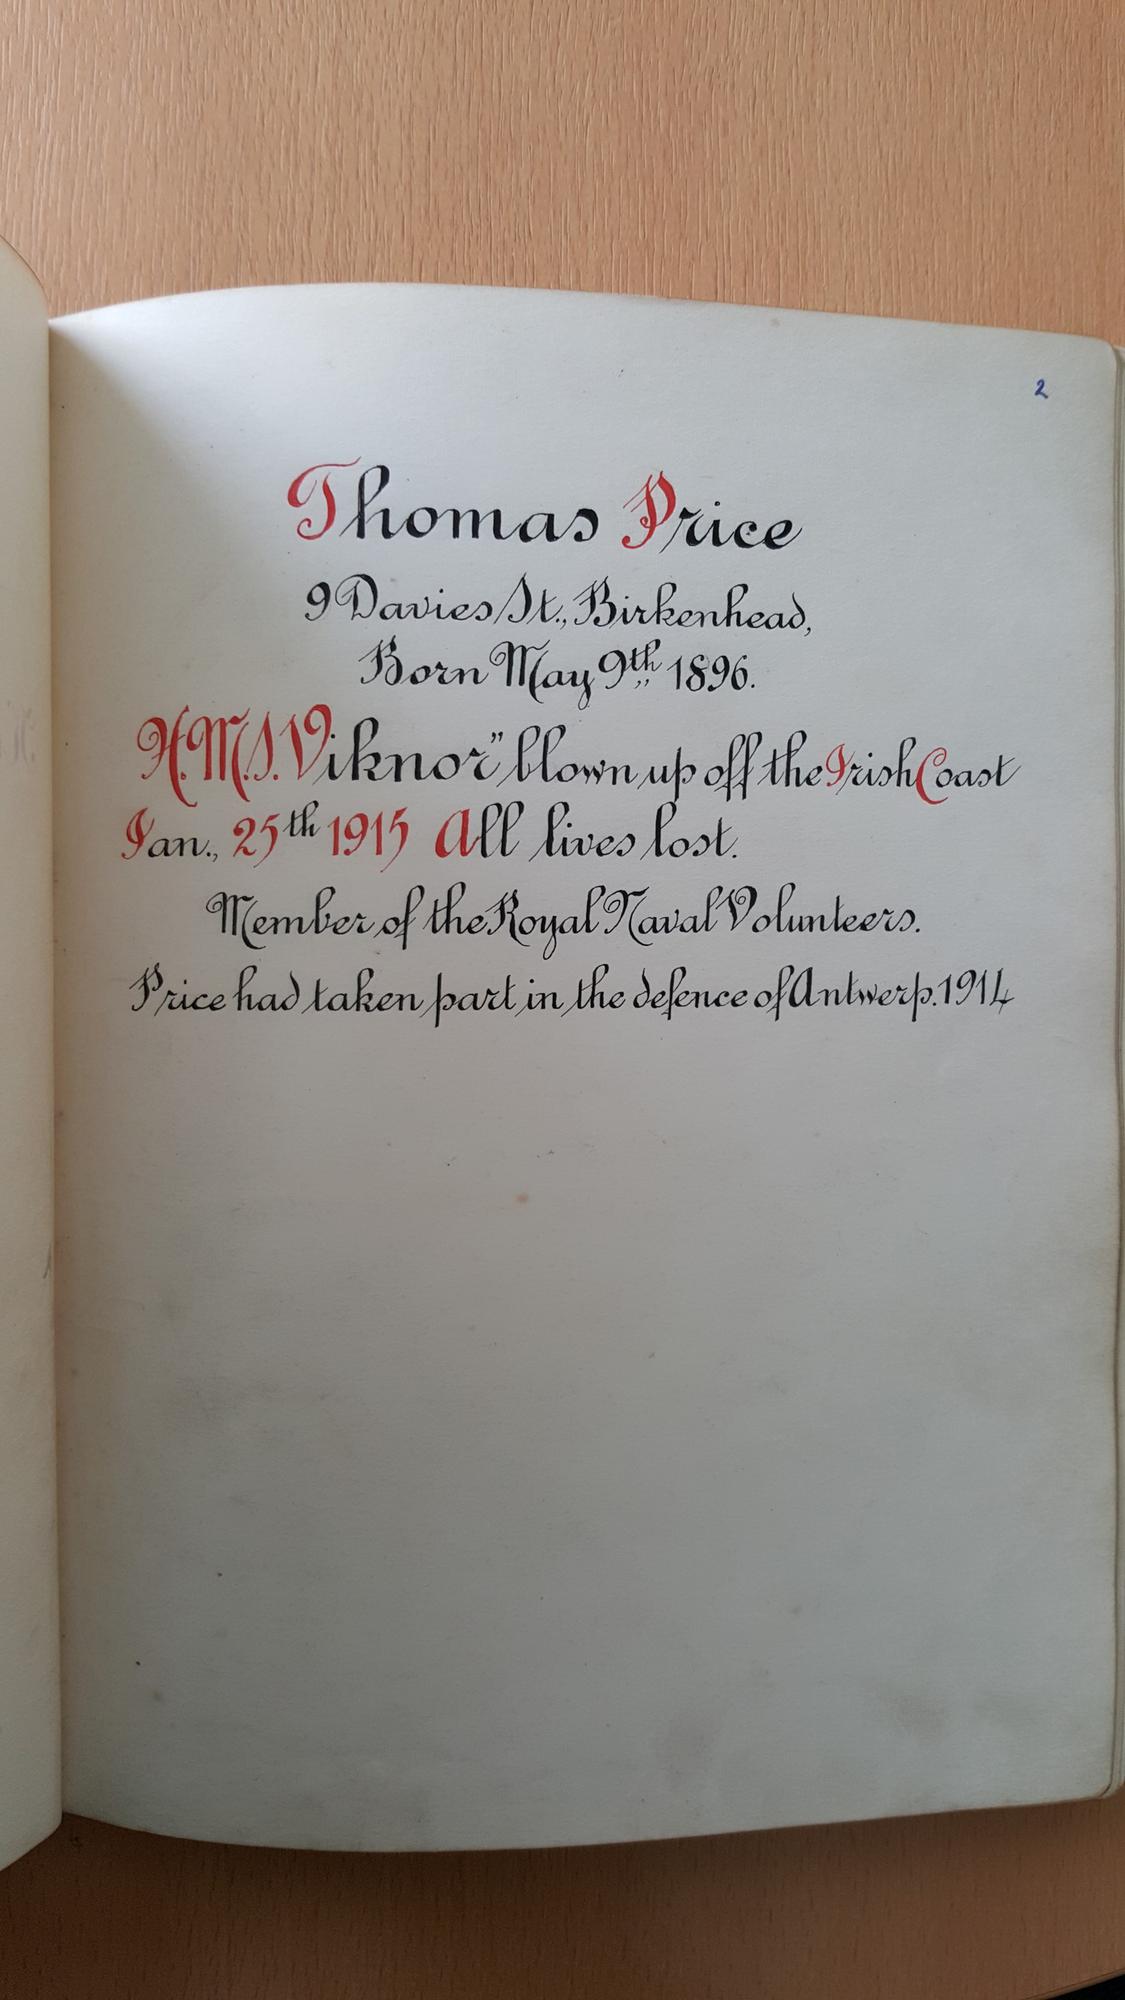 2
Thomas Price
9 Davies St., Birkenhead,
Born May 9th 1896.
H.M.S. Viknor" blown up off the Irish Coast
Jan., 25th 1915 All lives lost.
Member of the Royal Naval Volunteers.
Price had taken part in the defence of Antwerp. 1914